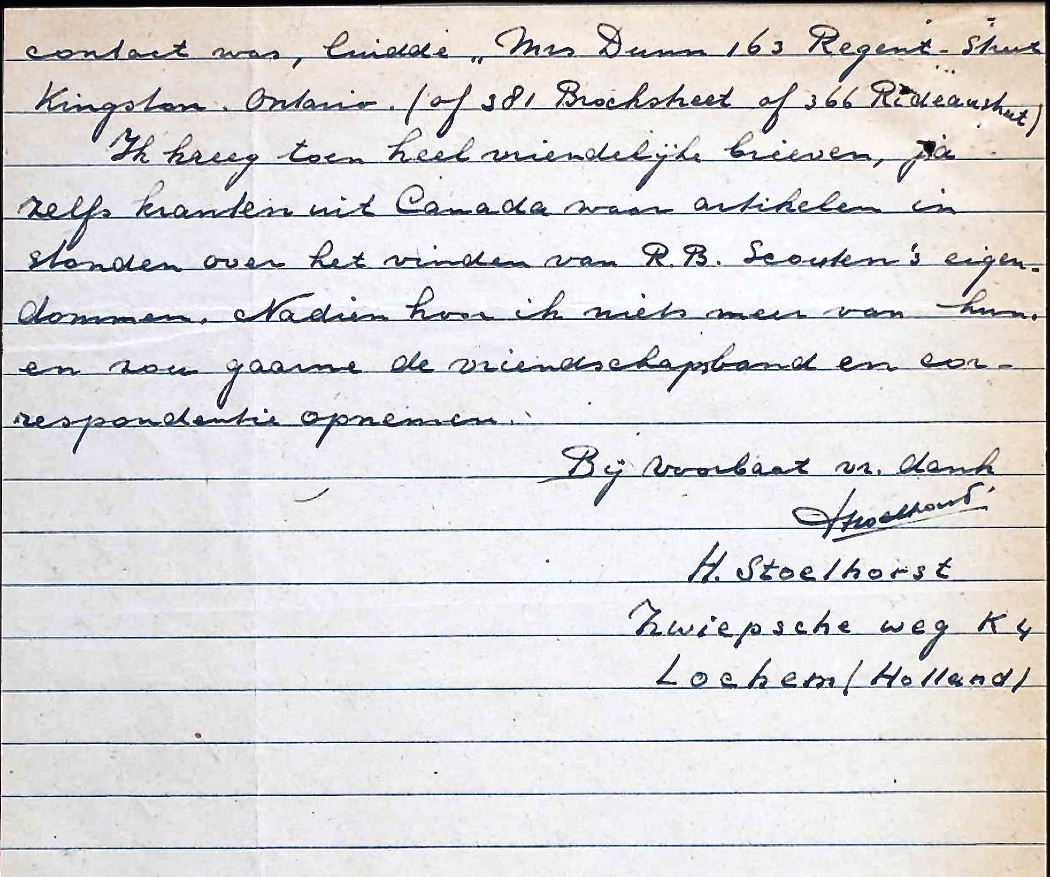 contact was, luidde „Mrs Dunn 163 Regent-Street
Kingston. Ontario. (of 381 Brockstreet of 366 Rideaustreet)
Ik kreeg toen heel vriendelijke brieven, ja
zelfs kranten uit Canada waar artikelen in
stonden over het vinden van R.B. Scouten's eigen-
dommen. Nadien hoor ik niets meer van hun.
en zou gaarne de vriendschapsband en cor-
respondentie opnemen.
Bij voorbaat vr. dank
HStoelhorst
H. Stoelhorst
Zwiepsche weg K 4
Lochem (Holland)